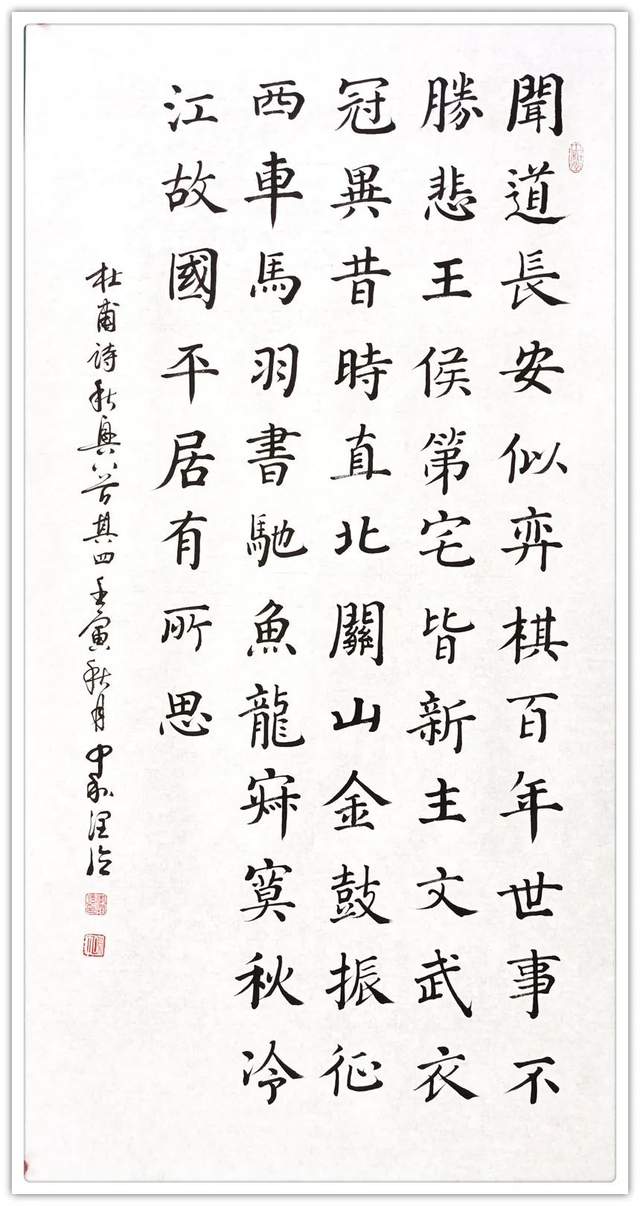 聞道長安似弈棋百年世事不
勝悲王侯第宅皆新主文武衣
冠異昔時直北關山金鼓振征
西車馬羽書馳魚龍寂寞秋冷
江故國平居有所思
杜甫诗秋興八首其四壬寅秋月